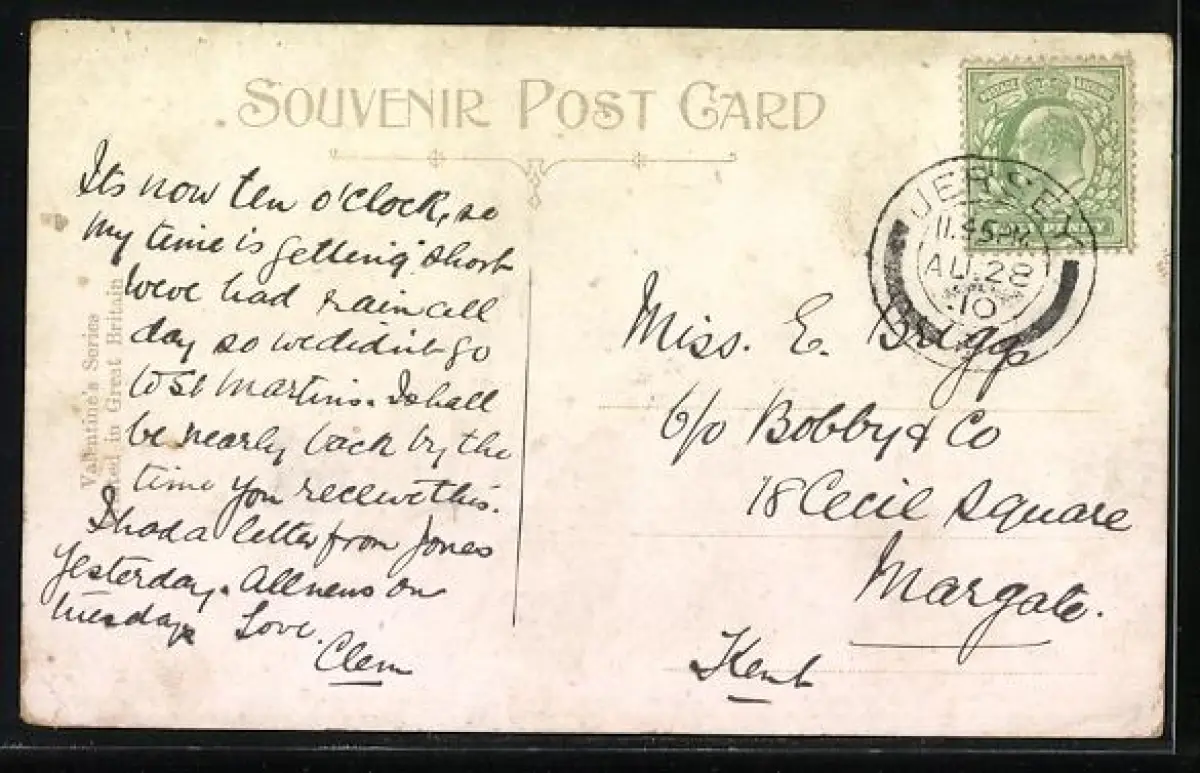 SOUVENIR POST CARD
Its now ten o'clock, so
my time is getting short
Weve had rain all
day so we didn't go
to St Martins. I shall
be nearly back by the
time you receive this.
I had a letter from Jones
Yesterday. All news on
tuesday. Love.
Clem
Valentine's Series
in Great Britain
JERSEY
11.45PM
AU.28
10
Miss. E. Briggs
c/o Bobby & Co
18 Cecil Square
Margate.
Kent